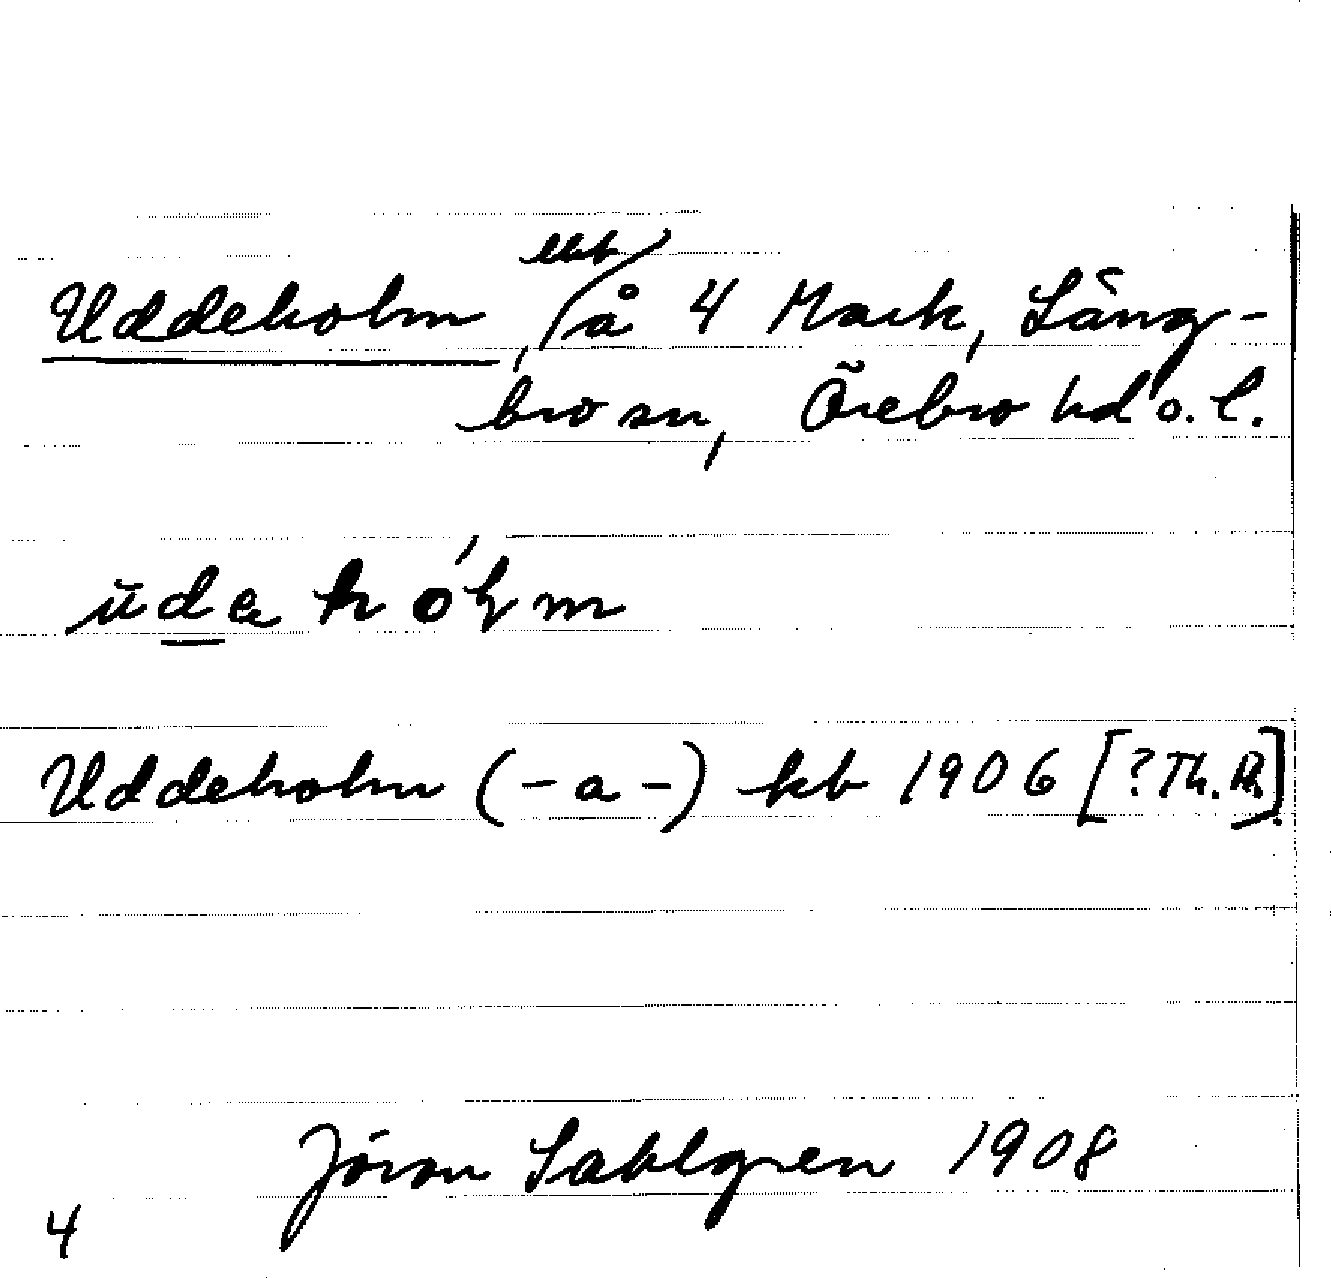 Uddeholm, lht å 4 Mark, Läng-
bro sn, Örebro hd o. l.
ŭdahólm
Uddeholm (-a-) kb 1906 [?Th. R.]
Jöran Sahlgren 1908
4